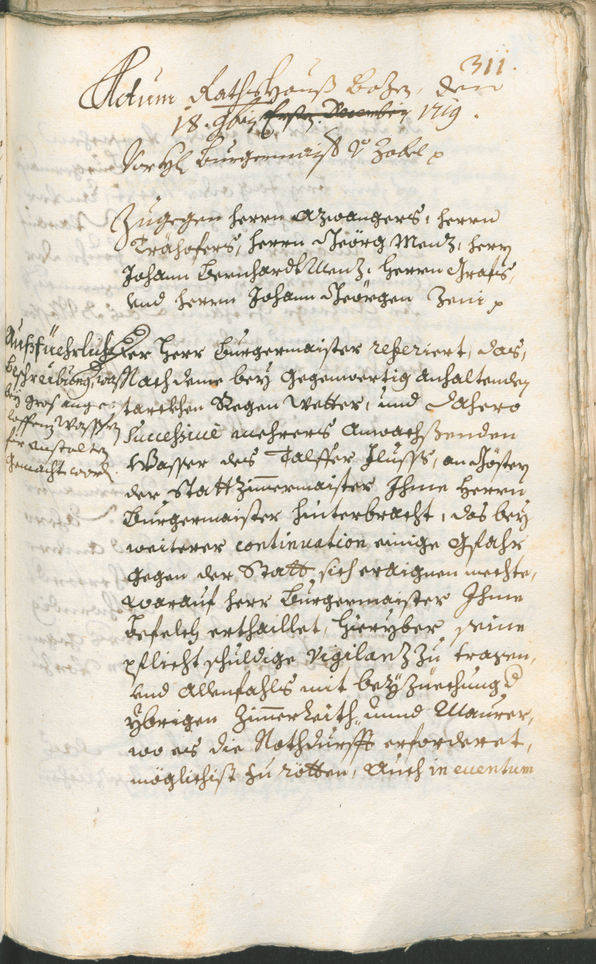 311.
Actum Rathshauß Bozen, den
18. 9bris Ersten Decembris 1719.
Vor Hl Burgermaister v Zobl p
Zugegen herrn Azwangers, herrn
Trähofers, herrn Georg Menz, herrn
Johann Bernhardt Menz, herrn Grafs,
und herrn Johann Georgen Zeni p
Außfüehrliche
Beschreibung, was
bey groß ange-
loffenen Wasser
für anstalten
gemacht word.
Der Herr Burgermaister referiert, das,
Nachdeme bey gegenwertig anhaltenden
starckhen Regen Wetter, und dahero
successive mehrers anwachßenden
Wasser des Talffer Flusß, an
der Statt Zimmermaister Ihme herrn
Burgermaister hinterbracht, das bey
weiterer continuation einige gfahr
gegen der Statt sich eraignen mechte,
worauf herr Burgermaister Ihme
befelch erthaillet, hieryber seine
pflicht schuldige vigilanz zu tragen,
und allenfahls mit beyziechung
ybrigen Zimmerleith, unnd Maurer,
wo es die Nothdurfft erforderet,
möglichist zu rötten, auch in eventum